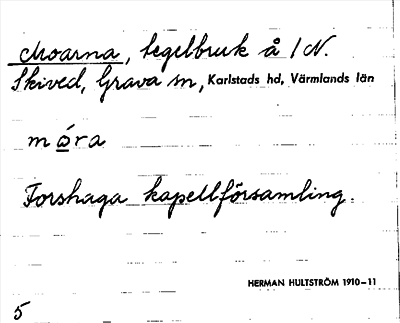 Moarna, tegelbruk å 1 N.
Skived, Grava sn, Karlstads hd, Värmlands län
móra
Forshaga kapellförsamling.
HERMAN HULTSTRÖM 1910-11
5